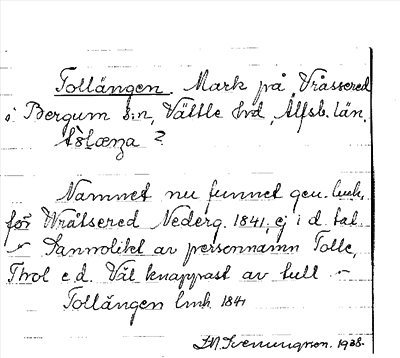 Tollängen. Mark på Vråssered
i Bergum s:n, Vättle hd, Älfsb. län.
Namnet nu funnet gen. lmk.
för Wråtsered Nederg. 1841, ej i d. tal.
Sannolikt av personnamn Tolle,
Thol e d. Väl knappast av tull –
Tollängen lmk 1841
1938.